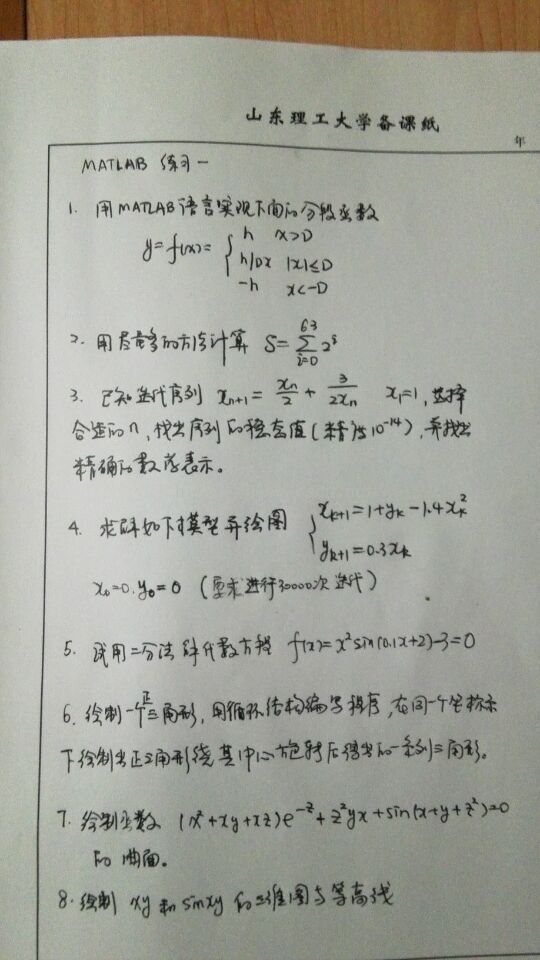 山东理工大学备课纸
年
MATLAB 练习一
1. 用MATLAB语言实现下面的分段函数
y=f(x)= { h x>D
h/Dx |x|≤D
-h x<-D
2. 用尽量多的方法计算 S=∑_{i=0}^{63} 2^i
3. 已知迭代序列 x_{n+1} = x_n/2 + 3/(2x_n) x_1=1, 选择
合适的n, 找出序列的稳态值(精度10^{-14}), 并找出
精确的数学表示。
4. 求解如下模型并绘图 { x_{k+1}=1+y_k-1.4x_k^2
y_{k+1}=0.3x_k
x_0=0. y_0=0 (要求进行30000次迭代)
5. 试用二分法解代数方程 f(x)=x^2sin(0.1x+2)-3=0
6. 绘制一个正三角形, 用循环结构编写程序, 在同一个坐标系
下绘制出正三角形绕其中心旋转后得出的一系列三角形。
7. 绘制函数 (x^2+xy+xz)e^{-z}+z^2yx+sin(x+y+z^2)=0
的曲面。
8. 绘制 xy 和 sinxy 的三维图与等高线